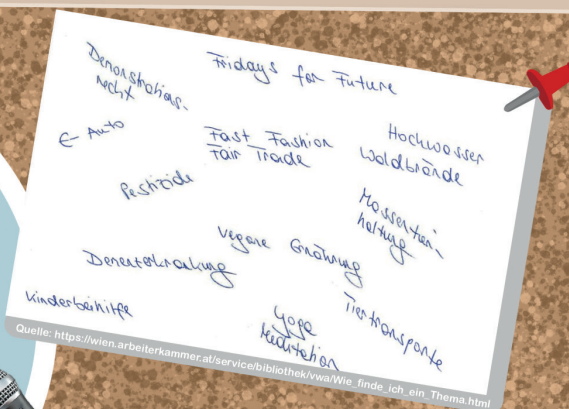 Fridays for Future
Demonstrations-
recht
E-Auto
Fast Fashion
Fair Trade
Hochwasser
Waldbrände
Pestizide
Massentier-
haltung
Vegane Ernährung
Demenzerkrankung
Kinderbeihilfe
Yoga
Meditation
Tiertransporte
Quelle: https://wien.arbeiterkammer.at/service/bibliothek/vwa/Wie_finde_ich_ein_Thema.html